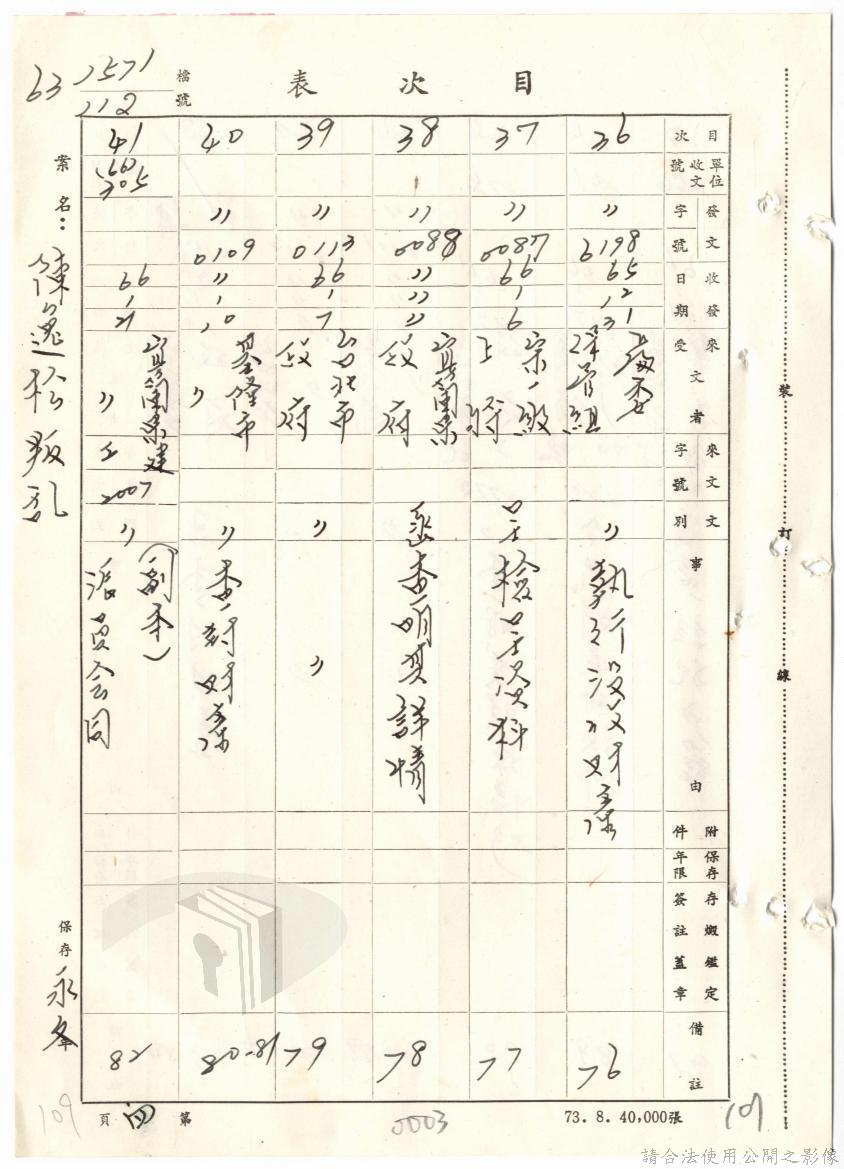 目次表
檔號
63 1571
112
案名：陳逸松叛乱
保存永年
目次 36 37 38 39 40 41
單位收文號 305
發文字 〃 〃 〃 〃 〃
發文號 6198 0087 0088 0113 0109
收發日期
65 12 31
66 1 6
〃 〃 〃
66 1 7
〃 1 10
66 1 21
來受文者
宗上將
宜蘭縣政府
台北市政府
基隆市〃
宜蘭縣〃
來文字 建土
來文號 2007
文別 〃 呈 函 〃 〃 〃
事由
執行沒收財產
呈檢呈資料
查明其詳情
〃
查封財產
(副本)
派員会同
附件
保存年限
存燬鑑定
簽註蓋章
備註 76 77 78 79 80-81 82
裝訂線
第四頁
73.8.40,000張
109
0003
109
請合法使用公開之影像